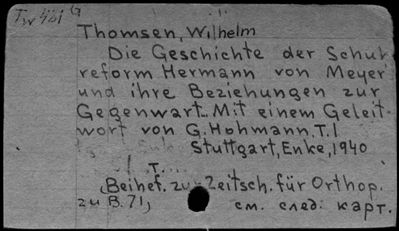 Tw 481 G
Thomsen, Wilhelm
Die Geschichte der Schuh
reform Hermann von Meyer
und ihre Beziehungen zur
Gegenwart. Mit einem Geleit-
wort von G. Hohmann. T. 1
Stuttgart, Enke, 1940
T.
(Beihef. zur Zeitsch. für Orthop.
zu B. 71)
см. след. карт.